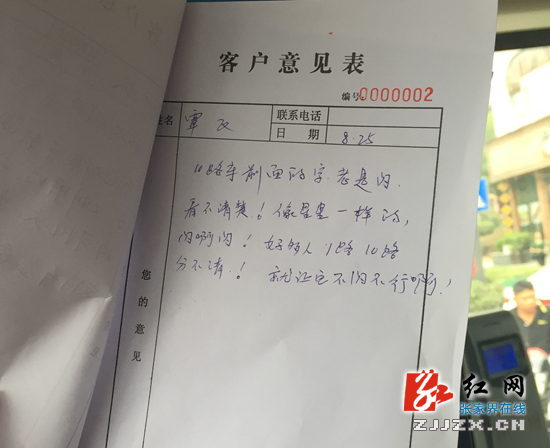 客户意见表
编号:0000002
姓名 覃 联系电话
日期 8.25
10路车前面的字老是闪.
看不清楚!像星星一样的,
闪啊闪!好多人1路10路
分不清.!就让它不闪不行啊!
您的意见
红网
张家界在线
ZJJZX.CN